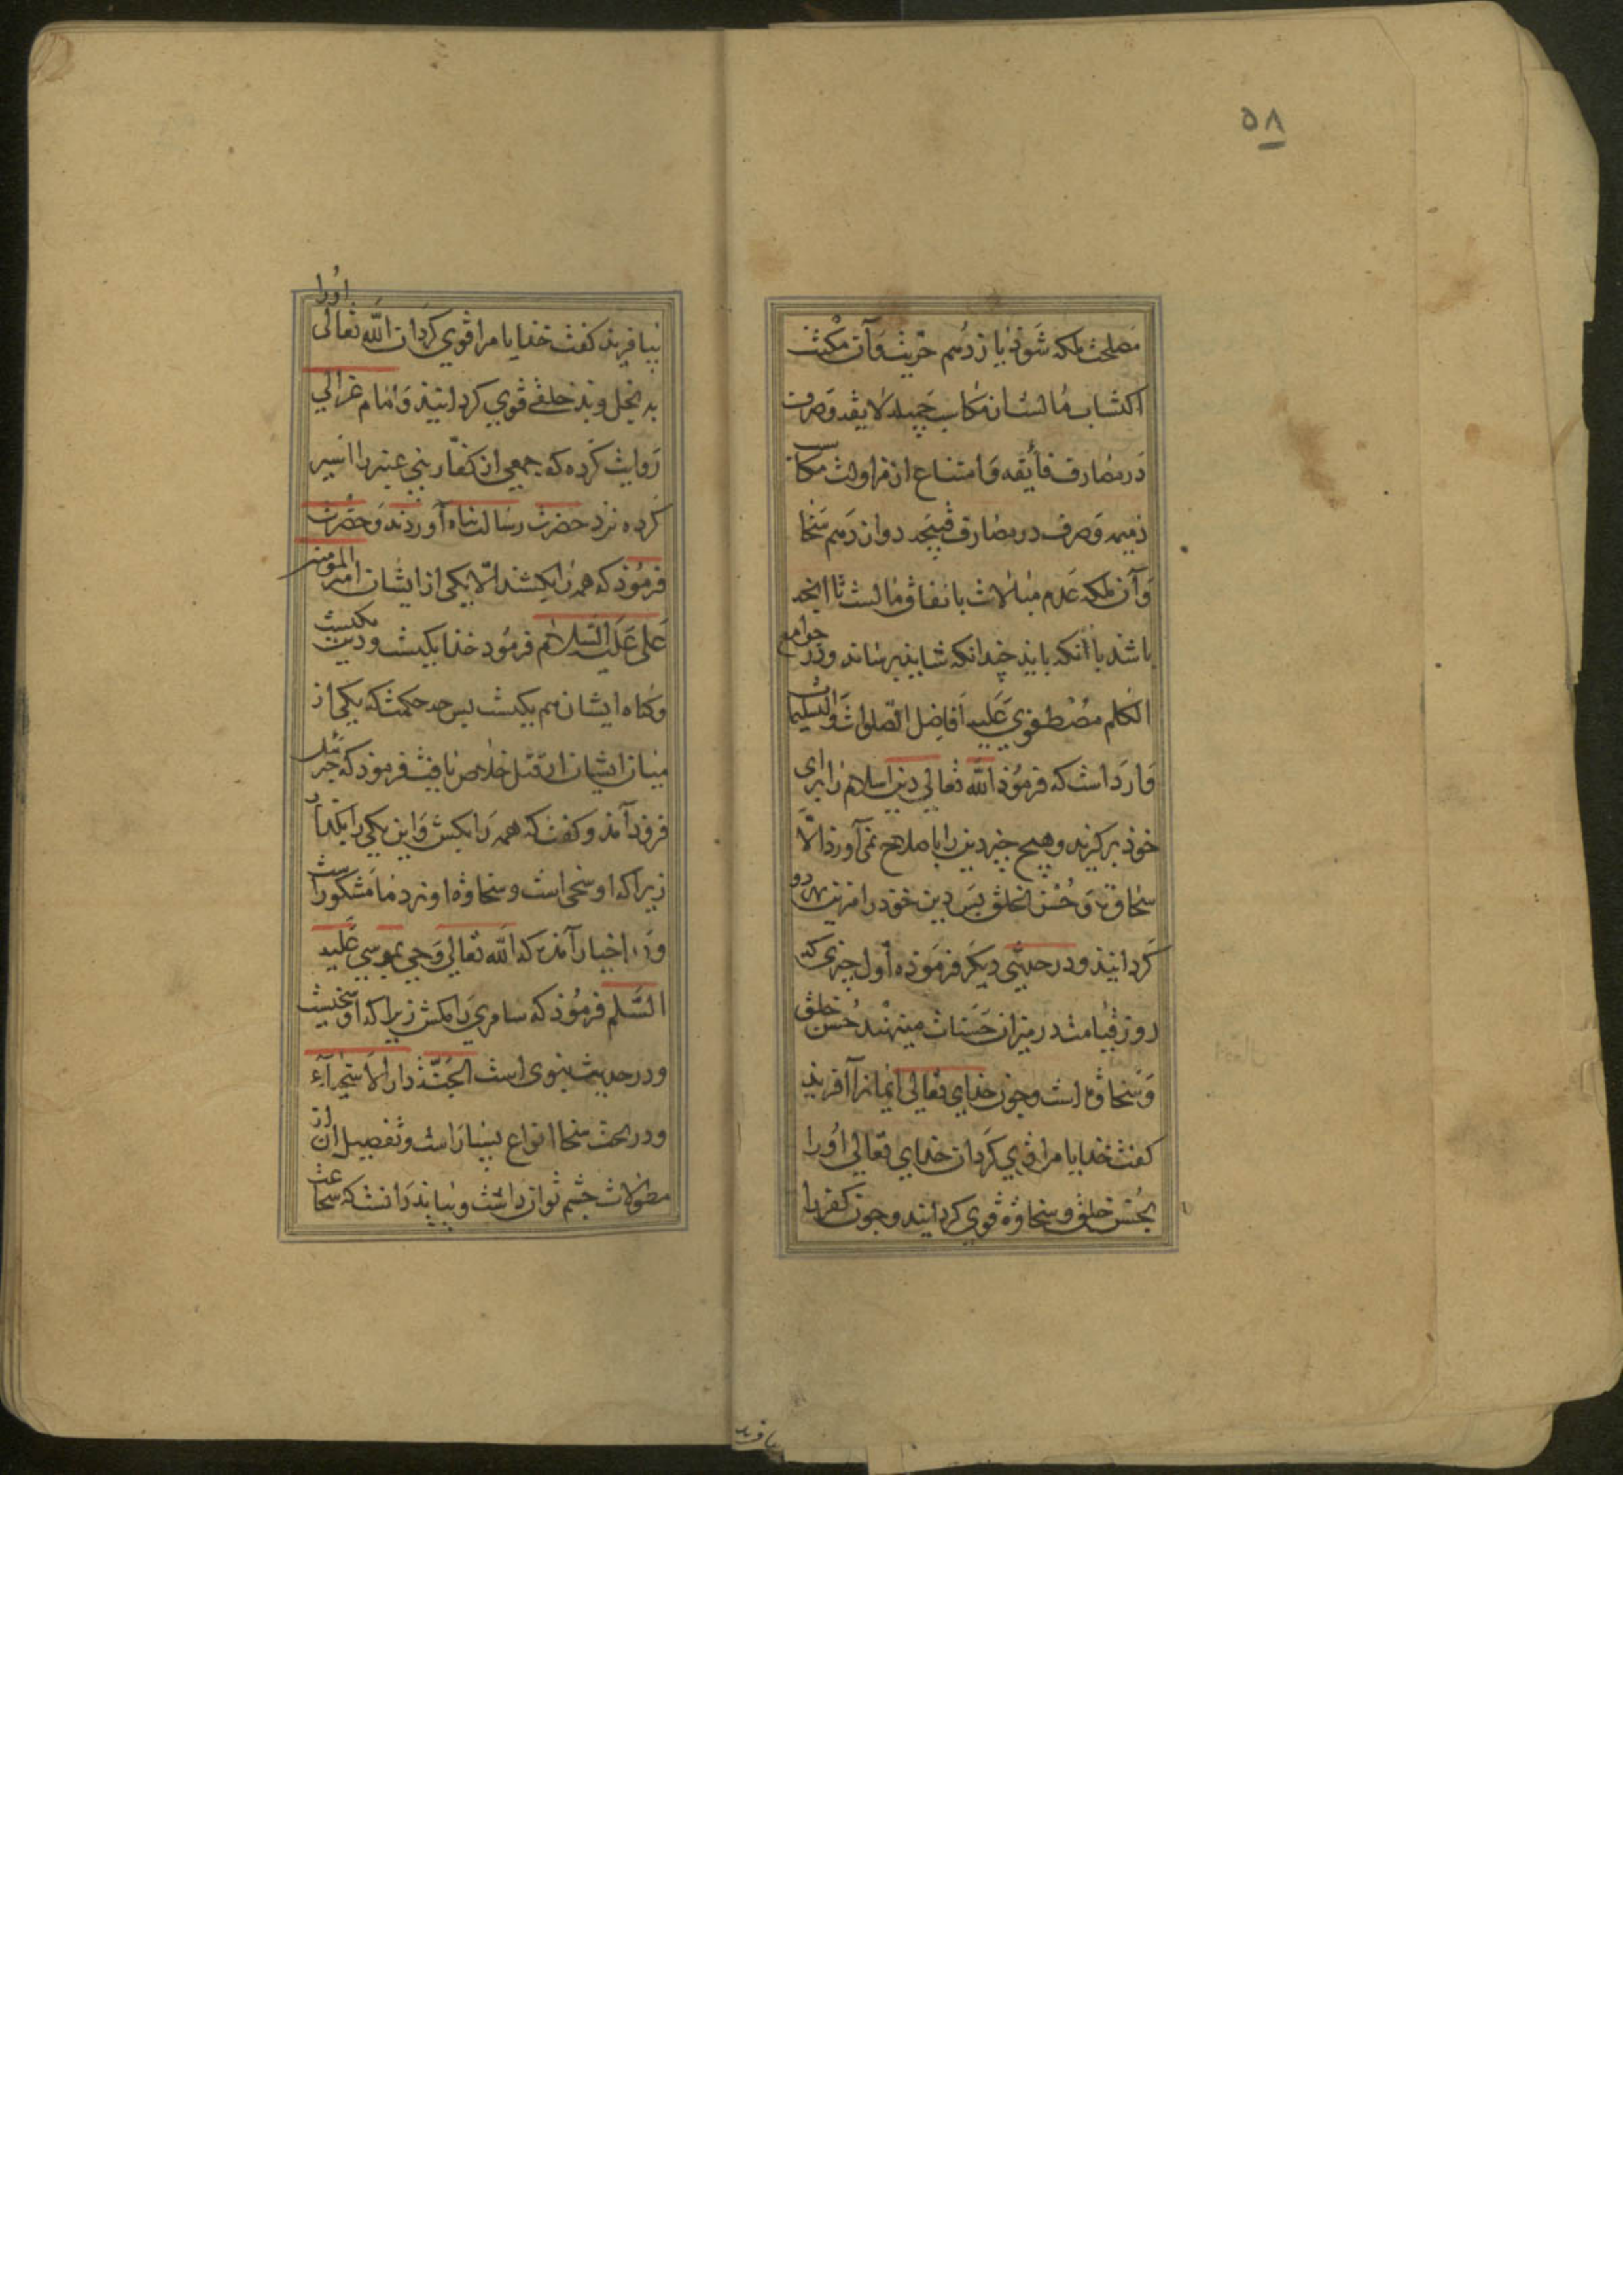 ۵۸
مصلحت ملکه شوذ یازدهم حریت و آن مکنت
اکتساب مالست از مکاسب جمیله لایقه و صرف
در مصارف فایقه و امتناع از مزاولت مکاسب
ذمیمه و صرف در مصارف قبیحه دوازدهم سخا
و آن ملکه عدم مبالات بانفاق مالست تا انچه
باشد با آنکه باید چندانکه شاید برساند و در جوامع
الکلم مصطفوی علیه افاضل الصلوات والتسلیمات
وارد است که فرموذ الله تعالی دین اسلام را برای
خوذ برکزید و هیچ چیز دین را باصلاح نمی آورد الا
سخاوة و حسن الخلق پس دین خوذ را مزین بهر دو
کردانیذ و در حدیثی دیکر فرموذه اول چیزی که
روز قیامت در میزان حسنات مینهند حسن خلق
و سخاوة است و چون خذای تعالی ایمانرا آفریذ
کفت خدایا مرا قوی کردان خدای تعالی اورا
بحسن خلق و سخاوة قوی کردانید و چون کفر را
بیافرید
بیافریذ کفت خدایا مرا قوی کردان الله تعالی اورا
به بخل و بد خلقی قوی کردانیذ و امام غزالی
روایت کرده که جمعی از کفار بنی عنبر را اسیر
کرده نزد حضرت رسالت پناه آوردند و حضرت
فرموذ که همه را بکشند الا یکی از ایشان امیر المومنین
علی علیه السلام فرموذ خذا یکیست و دین یکیست
و کناه ایشان هم یکیست پس چه حکمتست که یکی از
میان ایشان از قتل خلاص یافت فرموذ که جبرئیل
فرود آمذ و کفت که همه را بکش و این یکی را بکذار
زیرا که او سخی است و سخاوة او نزد ما مشکور است
و در اخبار آمذه که الله تعالی وحی بموسی علیه
السلم فرموذ که سامری را مکش زیرا که او سخیست
و در حدیث نبوی است الجنة دار الاسخیاء
و در بحث سخا انواع بسیار است و تفصیل آن از
مطولات چشم توان داشت و بباید دانست که سخا